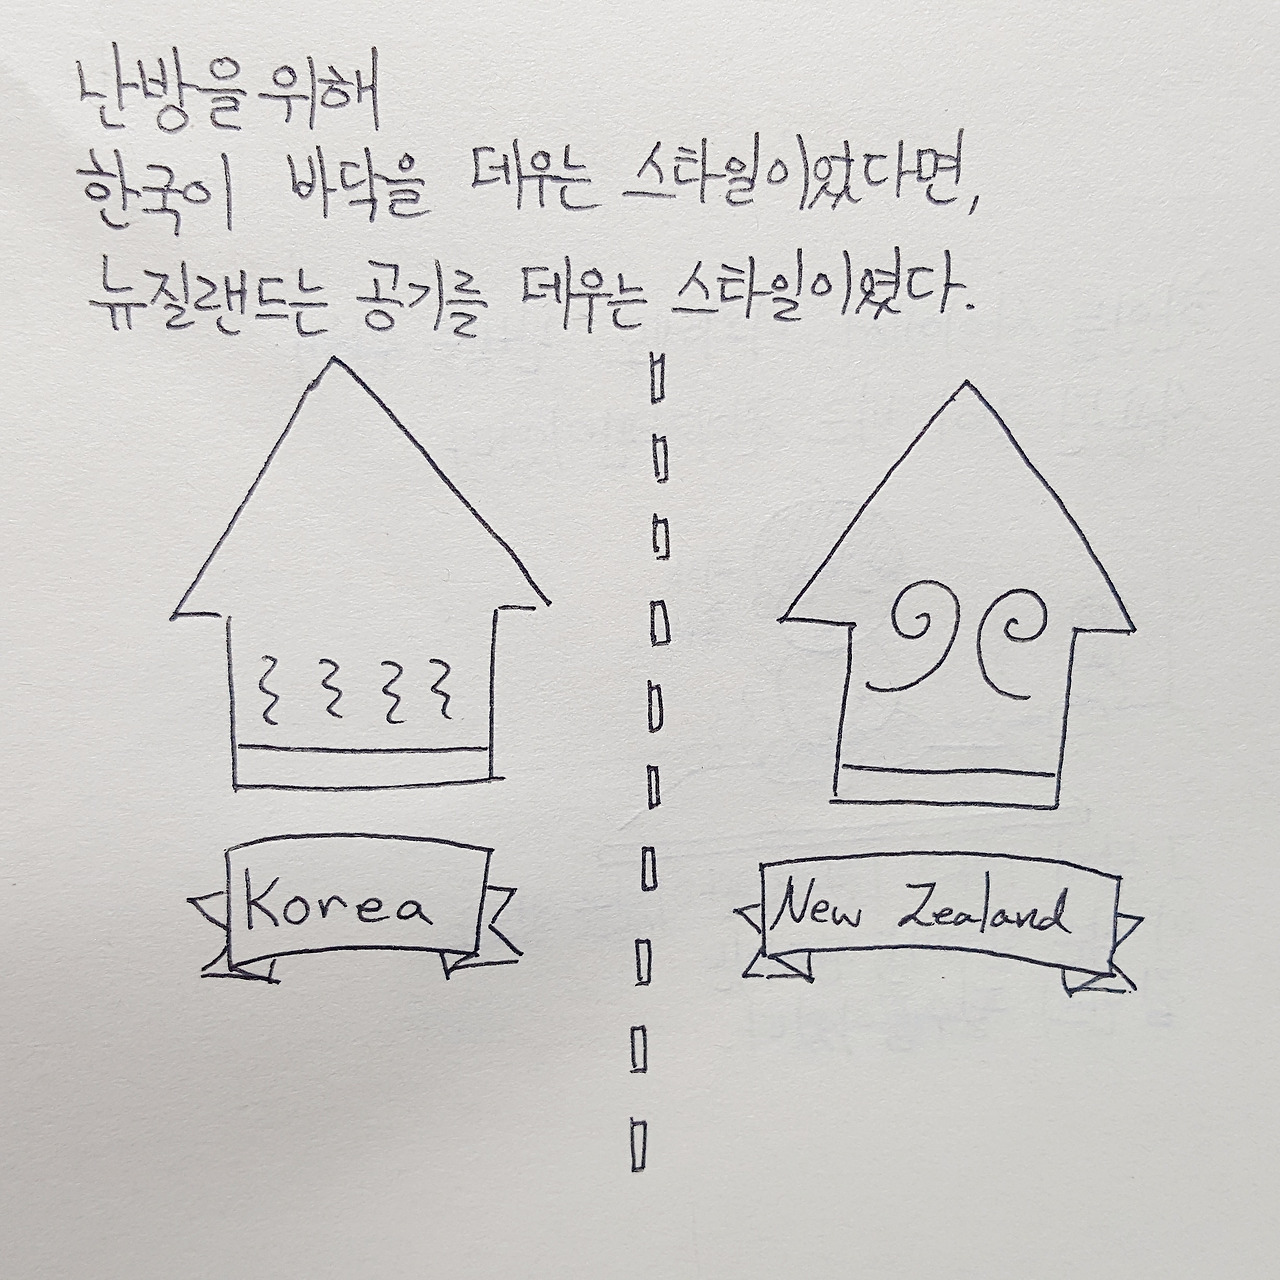 난방을 위해
한국이 바닥을 데우는 스타일이었다면,
뉴질랜드는 공기를 데우는 스타일이였다.
Korea
New Zealand